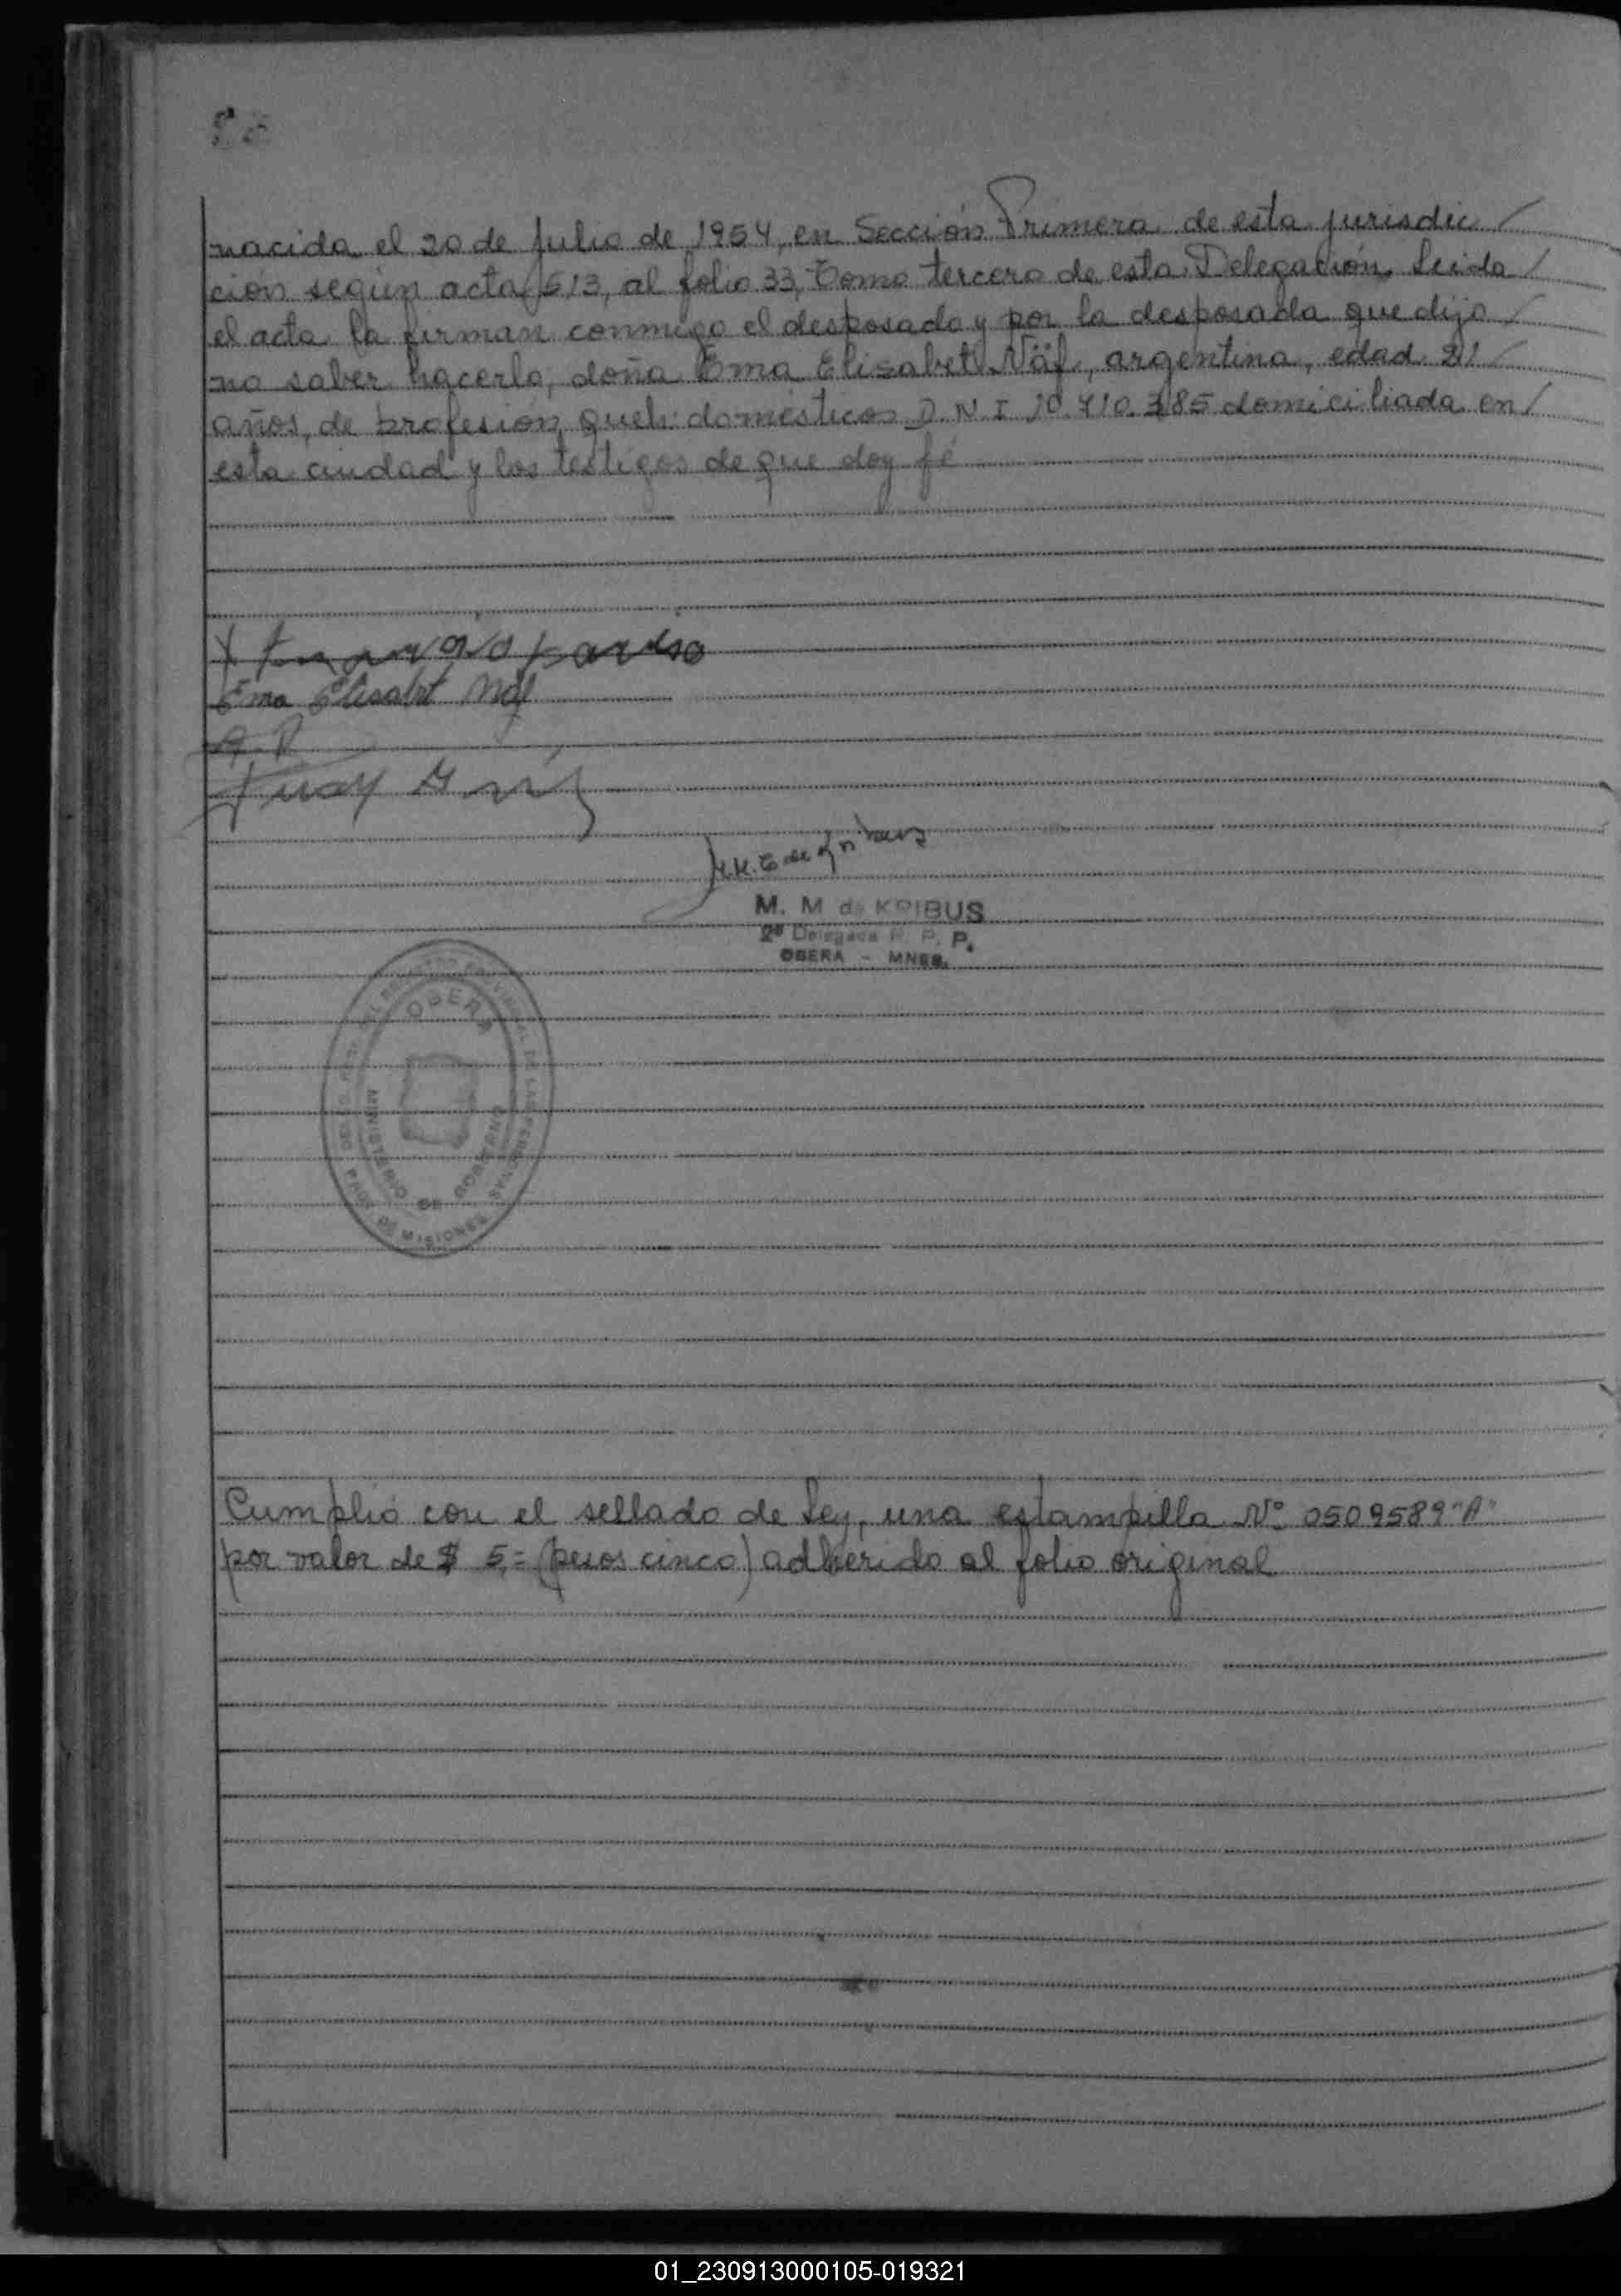 nacida el 20 de Julio de 1954, en Sección Primera de esta jurisdic /
ción según acta 513, al folio 33, Tomo tercero de esta Delegación. Leida /
el acta la firman conmigo el desposado y por la desposada que dijo /
no saber hacerlo, doña Ema Elisabet Näf, argentina, edad 21 /
años, de profesión queh. domésticos D.N.I 10.410.385 domiciliada en /
esta ciudad y los testigos de que doy fé
Ema Elisabet Näf
M. M de KRIBUS
2ª Delegada R. P. P.
OBERA - MNES.
OBERA
MINISTERIO DE GOBIERNO
PROV. DE MISIONES
Cumplió con el sellado de Ley, una estampilla Nº 0509589 "A"
por valor de $ 5,= (pesos cinco) adherido al folio original
01_230913000105-019321